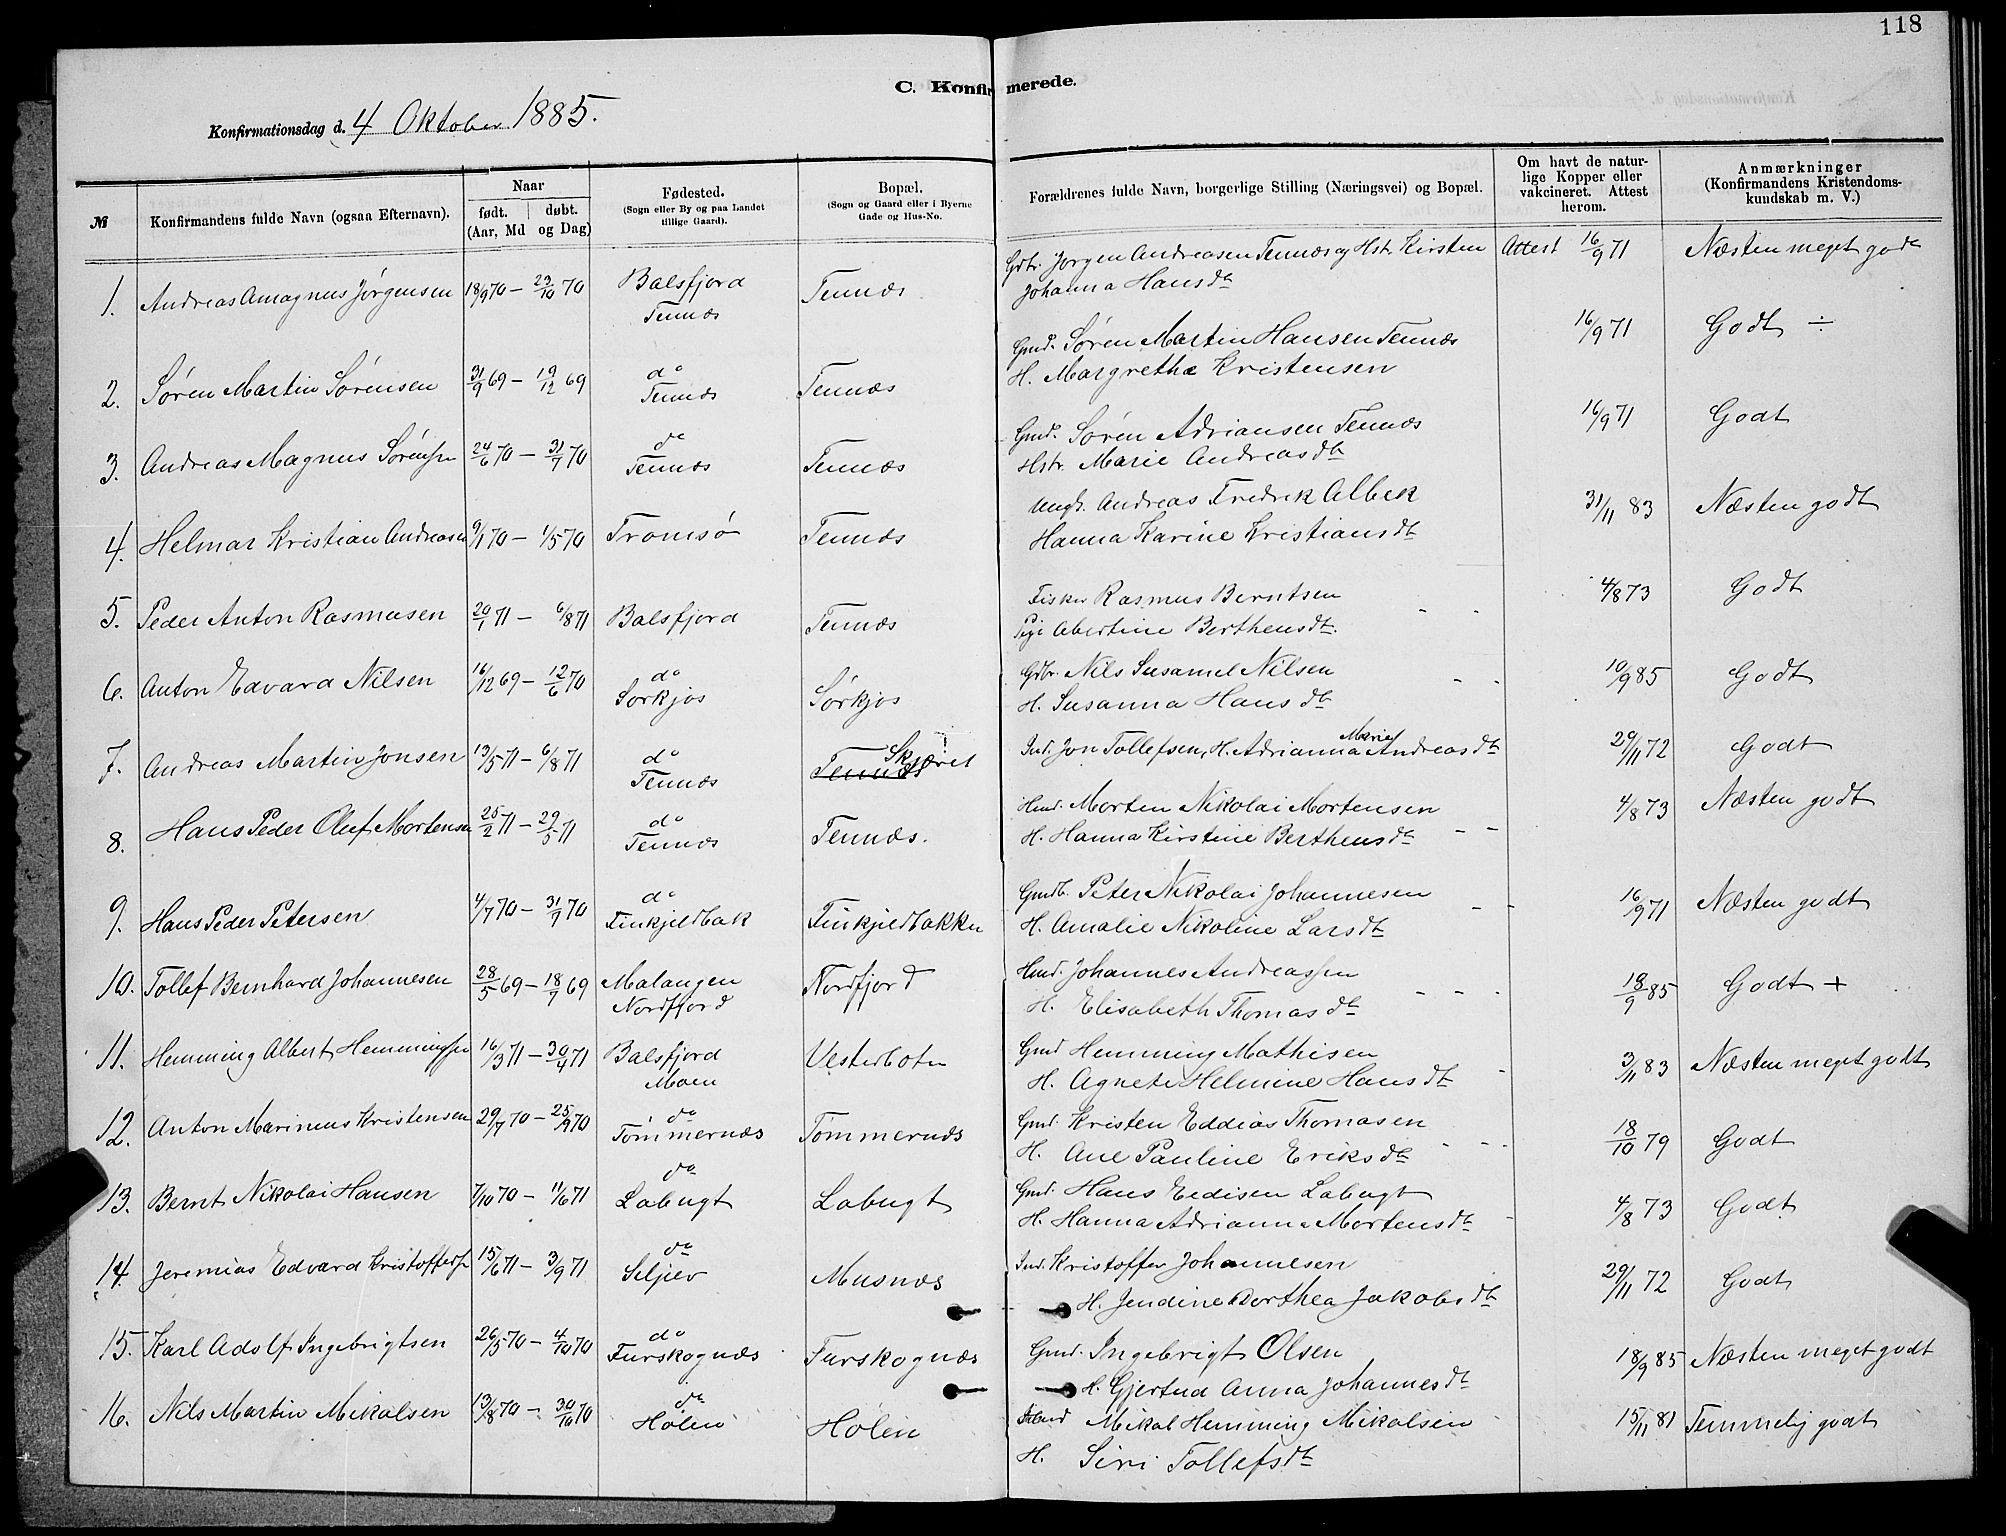 118
C. Konfirmerede.
Konfirmationsdag d. 4 Oktober 1885.
№ | Konfirmandens fulde Navn (ogsaa Efternavn). | Naar født. døbt. (Aar, Md og Dag) | Fødested. (Sogn eller By og paa Landet tillige Gaard). | Bopæl. (Sogn og Gaard eller i Byerne Gade og Hus-No. | Forældrenes fulde Navn, borgerlige Stilling (Næringsvei) og Bopæl. | Om havt de naturlige Kopper eller vakcineret. Attest herom. | Anmærkninger (Konfirmandens Kristendomskundskab m. V.)
1. Andreas Amagnus Jørgensen 18/9 70 – 23/10 70 Balsfjord Tennæs Tennæs Gdbr. Jørgen Andreasen Tennæs og Hstr. Kirsten Johanna Hansdtr Attest 16/9 71 Næsten meget godt
2. Søren Martin Sørensen 31/9 69 – 19/12 69 do Tennæs Tennæs Gmd. Søren Martin Hansen Tennæs H. Margrethe Kristensen 16/9 71 Godt ÷
3. Andreas Magnus Sørensen 24/6 70 – 31/7 70 do Tennæs Tennæs Gmd. Søren Adriansen Tennæs Hstr. Marie Andreasdtr 16/9 71 Godt
4. Helmar Kristian Andreasen 9/1 70 – 1/5 70 Tromsø Tennæs Ungk. Andreas Fredrik Albek Hanna Karine Kristiansdtr 31/11 83 Næsten godt
5. Peder Anton Rasmusen 20/1 71 – 6/8 71 Balsfjord Tennæs Fisker Rasmus Berntsen Pige Abertine Berthensdtr. - - 4/8 73 Godt
6. Anton Edvard Nilsen 16/12 69 – 12/6 70 do Sørkjos Sørkjos Gdbr. Nils Susamel Nilsen H. Susanna Hansdtr - - 10/9 85 Godt
7. Andreas Martin Jonsen 13/5 71 – 6/8 71 do Tennæs Tennæs Skjæret Ind. Jon Tollefsen, H. Adrianna Marie Andreasdtr 29/11 72 Godt
8. Hans Peder Oluf Mortensen 25/2 71 – 29/5 71 do Tennæs Tennæs. Hmd. Morten Nikolai Mortensen H. Hanna Kirstine Berthensdtr - - 4/8 73 Næsten godt
9. Hans Peder Petersen 4/7 70 – 31/7 70 do Finkjeldbak Finkjeldbakken Gmdb. Peter Nikolai Johannesen H. Amalie Nikoline Larsdtr - - 16/9 71 Næsten godt
10. Tollef Bernhard Johannesen 28/5 69 – 18/7 69 Malangen Nordfjord Nordfjord Hmd. Johannes Andreassen H. Elisabeth Thomasdtr - - - 18/9 85 Godt +
11. Hemming Albert Hemmingsen 16/3 71 – 30/4 71 Balsfjord Moen Vesterbotn Gmd Hemming Mathisen H. Agnete Helmine Hansdtr - 3/11 83 Næsten meget godt
12. Anton Marinius Kristensen 29/7 70 – 25/9 70 do Tømmernæs Tømmernæs Gmd. Kristen Eddias Thomasen H. Ane Pauline Eriksdtr - - - 18/10 79 Godt
13. Bernt Nikolai Hansen 7/10 70 – 11/6 71 do Labugt Labugt Gmd. Hans Eedisen Labugt H. Hanna Adrianna Mortensdtr - 4/8 73 Godt
14. Jeremias Edvard Kristoffersen 15/6 71 – 3/9 71 do Seljelv Musnæs Ind. Kristoffer Johannesen H. Jendine Dorthea Jakobsdtr 29/11 72 Godt
15. Karl Adolf Ingebrigtsen 26/5 70 – 4/10 70 do Furskognæs Furskognæs Gmd. Ingebrigt Olsen H. Gjertrud Anna Johannesdtr 18/9 85 Næsten meget godt
16. Nils Martin Mikalsen 13/8 70 – 30/10 70 do Holen Holen Mikal Hemming Mikalsen H. Siri Tollefsdtr 15/11 81 Temmelig godt